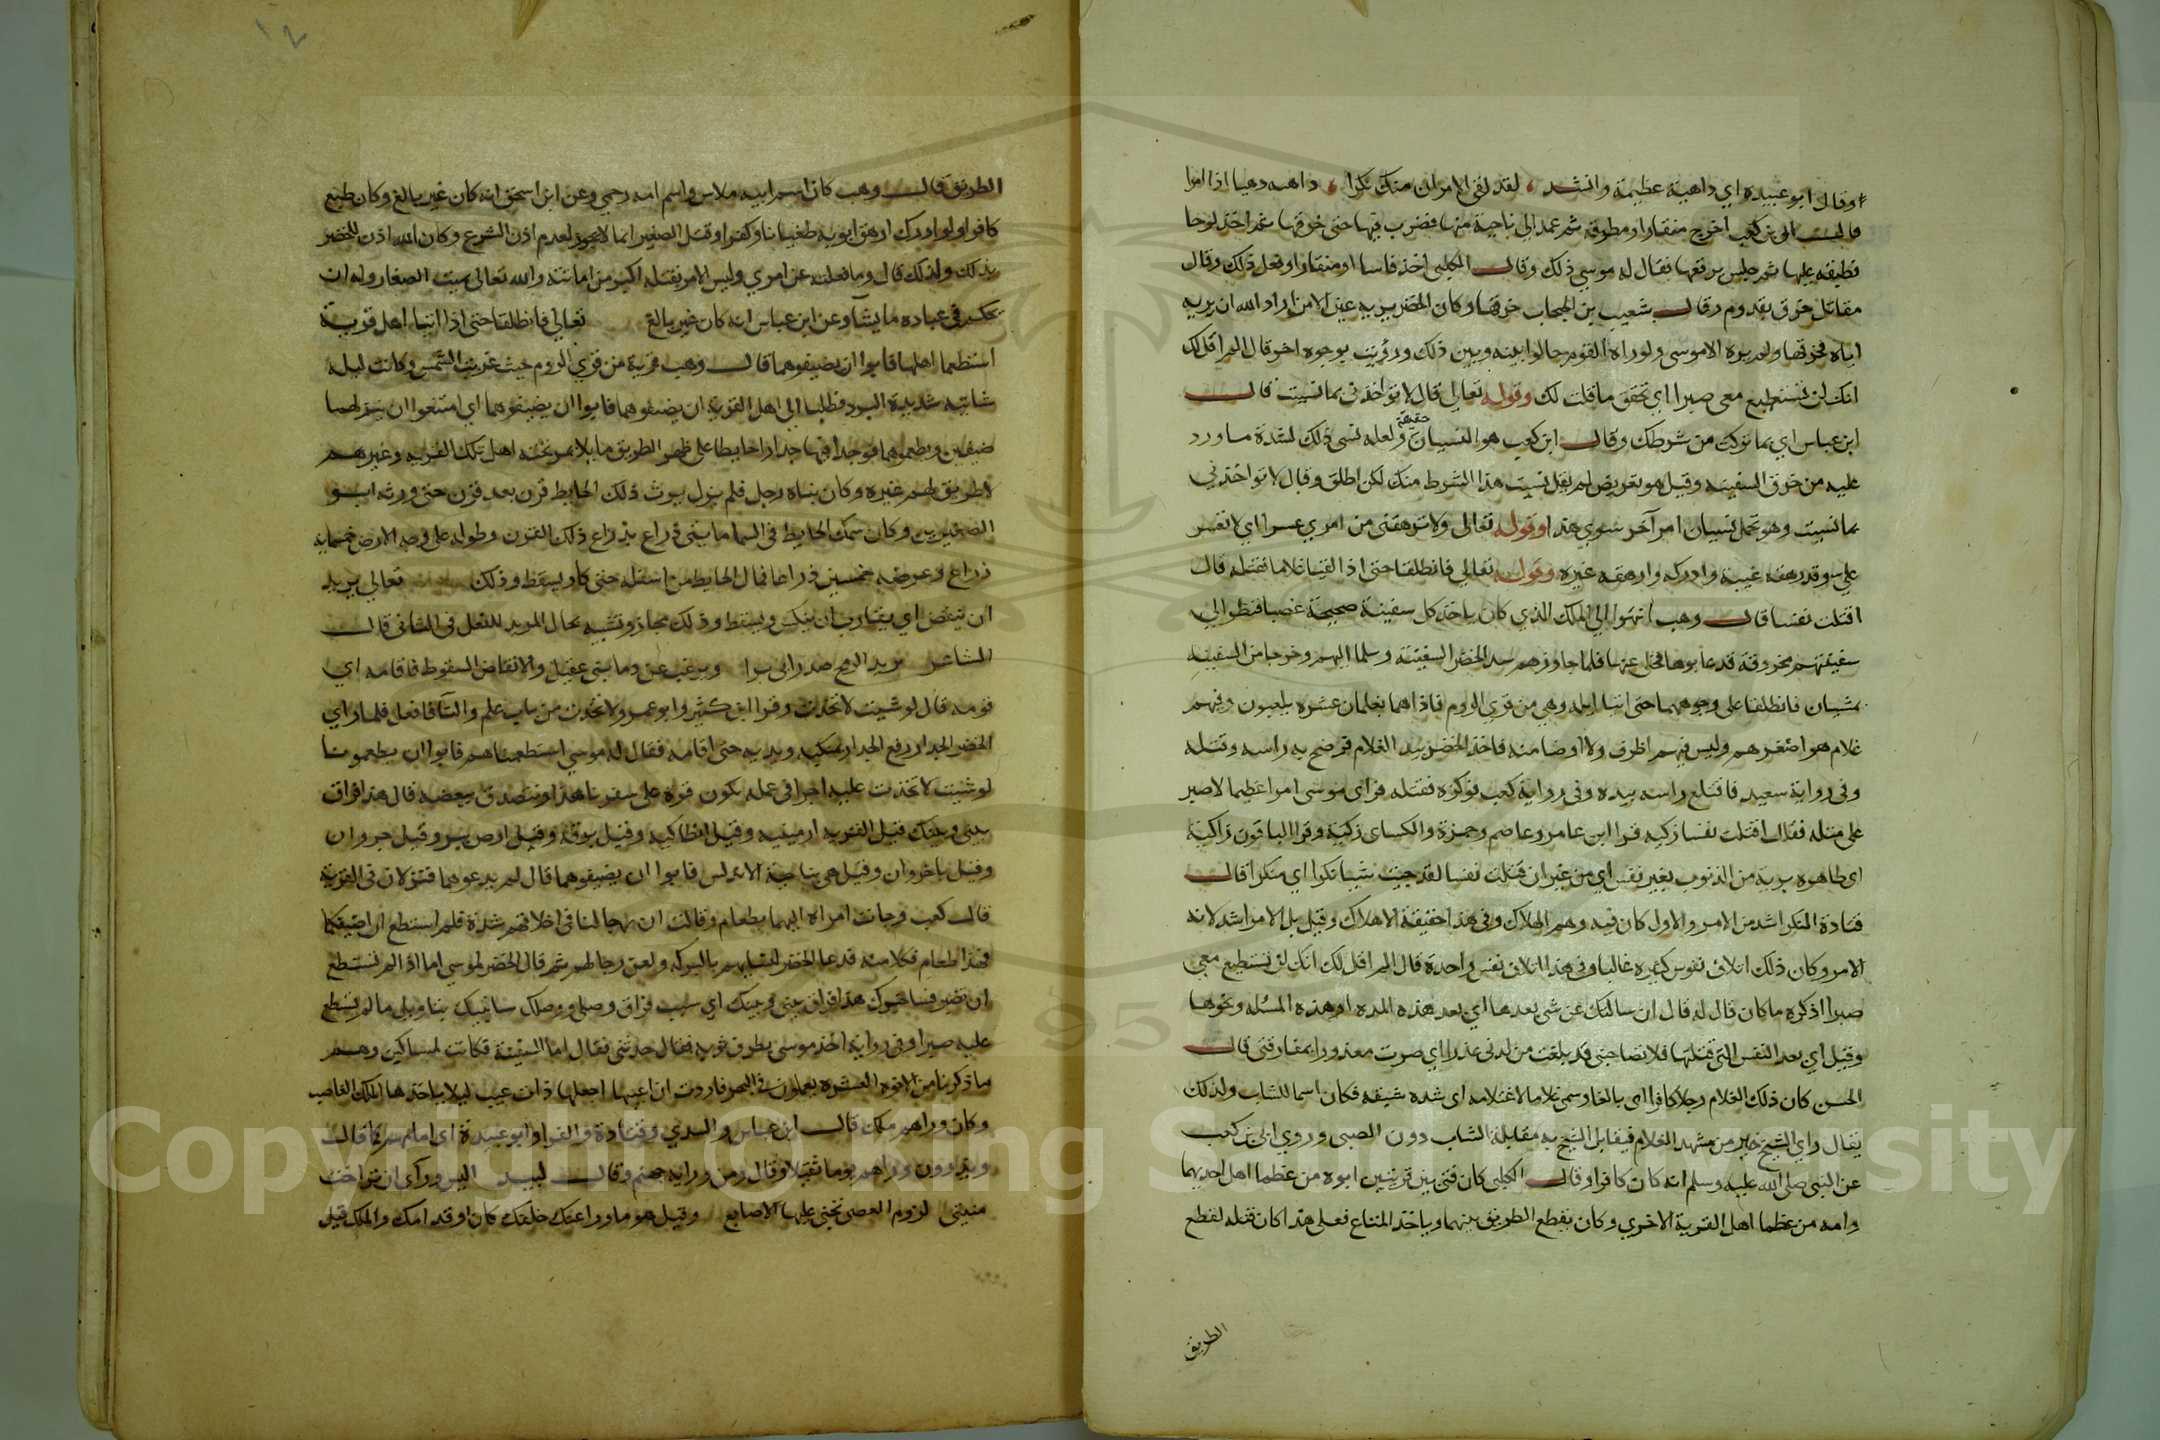 وقال ابو عبيده اي داهية عظيمة وانشد لقد لقي الاقران منك نكرا داهيه دهيا ادا امرا
قال ابي بن كعب اخرج منقارا ومطرقة ثم عمد الى ناحية منها فضرب فيها حتى خرقها ثم اخذ لوحا
فطبقه عليها ثم جلس يرقعها فقال له موسي ذلك وقال الكلبي اخذ فاسا او منقارا وفعل ذلك وقال
مقاتل خرق بقدوم وقال شعيب بن الحبحاب خرقها وكان الخضر لا يريه عين الا من اراد الله ان يريه
اياه فخرقها ولم يره الا موسي ولو راه القوم حالوا بينه وبين ذلك ورؤيت بوجوه اخر قال الم اقل لك
انك لن تستطيع معي صبرا اي تحقق ما قلت لك وقوله تعالي قال لا تواخذني بما نسيت قال
ابن عباس اي بما تركت من شرطك وقال ابن كعب هو النسيان حقيقة ولعله نسي ذلك لشدة ما ورد
عليه من خرق السفينه وقيل هو تعريض لم يقل نسيت هذا الشرط منك لكن اطلق وقال لا تواخذني
بما نسيت وهو يحمل نسيان امر آخر سوي هذا وقوله تعالى ولا ترهقني من امري عسرا اي لا تعسر
علي وقد رهقه غيبه وادركه وارهقه غيره وقوله تعالي فانطلقا حتى اذا لقيا غلاما فقتله قال
اقتلت نفسا قال وهب انتهوا الي الملك الذي كان ياخذ كل سفينة صحيحة غصبا فنظر الي
سفينتهم مخروقة قد عابوها فخلى عنها فلما جاوزهم سد الخضر السفينة وسلما اليهم وخرجا من السفينه
يمشيان فانطلقا على وجوههما حتى اتيا ايله وهي من قري الروم فاذا هما بغلمان عشره يلعبون وفيهم
غلام هو اصغرهم وليس فيهم اظرف ولا اوضا منه فاخذ الخضر بيد الغلام فرضخ به راسه وقتله
وفي رواية سعيد فاقتلع راسه بيده وفي رواية كعب فوكزه فقتله فراى موسى امرا عظيما لا صبر
على مثله فقال اقتلت نفسا زكيه قرا ابن عامر وعاصم وحمزة والكساى زكية وقرا الباقون زاكية
اى طاهره بريه من الذنوب بغير نفس اي من غير ان قتلت نفسا لقد جيت شييا نكرا اي منكرا قال
قتادة النكر اشد من الامر والاول كان فيه وهم الهلاك وفي هذا حقيقة الاهلاك وقيل بل الامر اشد لانه
الامر وكان ذلك اتلاف نفوس كثيره غالبا وفي هذا اتلاف نفس واحدة قال الم اقل لك انك لن تستطيع معي
صبرا اذكره ما كان قال له قال ان سالتك عن شى بعدها اي بعد هذه المده او هذه المسله ونحوها
وقيل اي بعد النفس التي قتلتها فلا تصاحبني قد بلغت من لدني عذرا اي صرت معذورا بمفارقتي قال
الحسن كان ذلك الغلام رجلا كافرا اى بالغا وسمي غلاما لاغتلامه اى شده شبقه فكان اسما للشاب ولذلك
يقال راي الشيخ خير من مشهد الغلام فيقابل الشيخ به مقابلة الشاب دون الصبى وروي ابي بن كعب
عن النبي صلى الله عليه وسلم انه كان كافرا وقال الكلبى كان فتى بين قريتين ابوه من عظما اهل احديهما
وامه من عظما اهل القرية الاخري وكان يقطع الطريق بينهما وياخذ المتاع فعلى هذا كان قتله لقطع
الطريق
الطريق قال وهب كان اسم ابيه ملاس واسم امه رحمي وعن ابن اسحق انه كان غير بالغ وكان طبع
كافرا ولو ادرك ارهق ابويه طغيانا وكفرا وقتل الصغير انما لا يجوز لعدم اذن الشرع وكان الله اذن للخضر
بذلك ولذلك قال وما فعلته عن امري وليس الامر بقتله اكبر من اماتته والله تعالى يميت الصغار وله ان
يحكم في عباده ما يشآ وعن ابن عباس انه كان غير بالغ تعالي فانطلقا حتى اذا اتيا اهل قرية
استطعما اهلها فابوا ان يضيفوهما قال وهب قرية من قري الروم حيث غربت الشمس وكانت ليله
شاتيه شديدة البرد فطلبا الى اهل القريه ان يضيفوهما فابوا ان يضيفوهما اي امتنعوا ان ينزلهما
ضيفين ويطعموهما فوجدا فيها جدارا حايطا على ظهر الطريق مايلا يمر تحته اهل تلك القريه وغيرهم
لا طريق لهم غيره وكان بناه رجل فلم يزل يورث ذلك الحايط قرن بعد قرن حتى ورثه ابو
الصغيرين وكان سمك الحايط في السما مايتي ذراع بذراع ذلك القرن وطوله على وجه الارض خمسماية
ذراع وعرضه خمسين ذراعا فمال الحايط من اسفله حتى كاد يسقط وذلك تعالي يريد
ان ينقض اي يقارب ان ينكس ويسقط وذلك مجاز وتشبيه بحال المريد للفعل في الثاني قال
الشاعر يريد الرمح صدر ابى برا ويرغب عن دما بنى عقيل والانقاض السقوط فاقامه اي
قومه قال لو شيت لاتخذت وقرا ابن كثير وابو عمرو لاتخذت من باب علم والتآ فا فعل فلما راي
الخضر الجدار رفع الجدار بمنكبه ويديه حتى اقامه فقال له موسي استطعمناهم فابوا ان يطعمونا
لو شيت لاتخذت عليه اجرا في عمله نكون قوه على سفرنا هذا ونتصدق ببعضه قال هذا فراق
بيني وبينك قيل القريه ارمينيه وقيل انطاكيه وقيل برقة وقيل ارض بئر وقيل جروان
وقيل باخروان وقيل هي بناحية الاندلس فابوا ان يضيفوهما قال لم يدعوهما فنزلان في القرية
قال كعب وجات امراه اليهما بطعام وقالت ان رجالنا في اخلاقهم شدة فلم استطع ان اضيفكما
فهذا طعام فكلا منه فدعا الخضر لنسايهم بالبركه ولعن رجالهم ثم قال الخضر لموسي اما اذ لم تستطع
ان تصبر هذا فراق بيني وبينك اي سبب فراق وصلي ووصلك سانبيك بتاويل ما لم تستطع
عليه صبرا وفي رواية اخذ موسى بطرف ثوبه فقال حدثني فقال اما السفينة فكانت لمساكين وهم
ما ذكرنا من الاخوه العشره يعملون في البحر فاردت ان اعيبها اجعلها ذات عيب ليلا ياخذها الملك الغاصب
وكان وراهم ملك قال ابن عباس والسدي وقتادة والفرا وابو عبيدة اى امامهم كما قال
ويذرون وراهم يوما ثقيلا وقال ومن ورايه جهنم وقال لبيد اليس وراى ان تراخت
منيتي لزوم العصى تحنى عليها الاصابع وقيل هو ما وراعنك خلفك كان او قدامك والملك قيل
Copyright © King Saud University